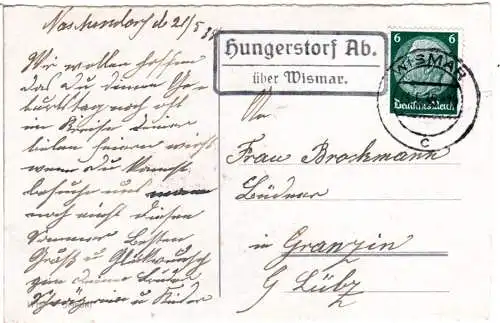 Naschendorf d 21/5 34
Wir wollen hoffen
das du deinen Ge-
burtstag noch oft
im Kreise deiner
lieben feiern wirst
wenn du kannst
besuche uns
noch diesen
Sommer Besten
Gruß u Glückwunsch
von deine
Schwägerin u Kinder
Hungerstorf Ab.
über Wismar.
6 6
Deutsches Reich
WISMAR
c
An
Frau Brockmann
Büdner
in Granzin
b/ Lübz